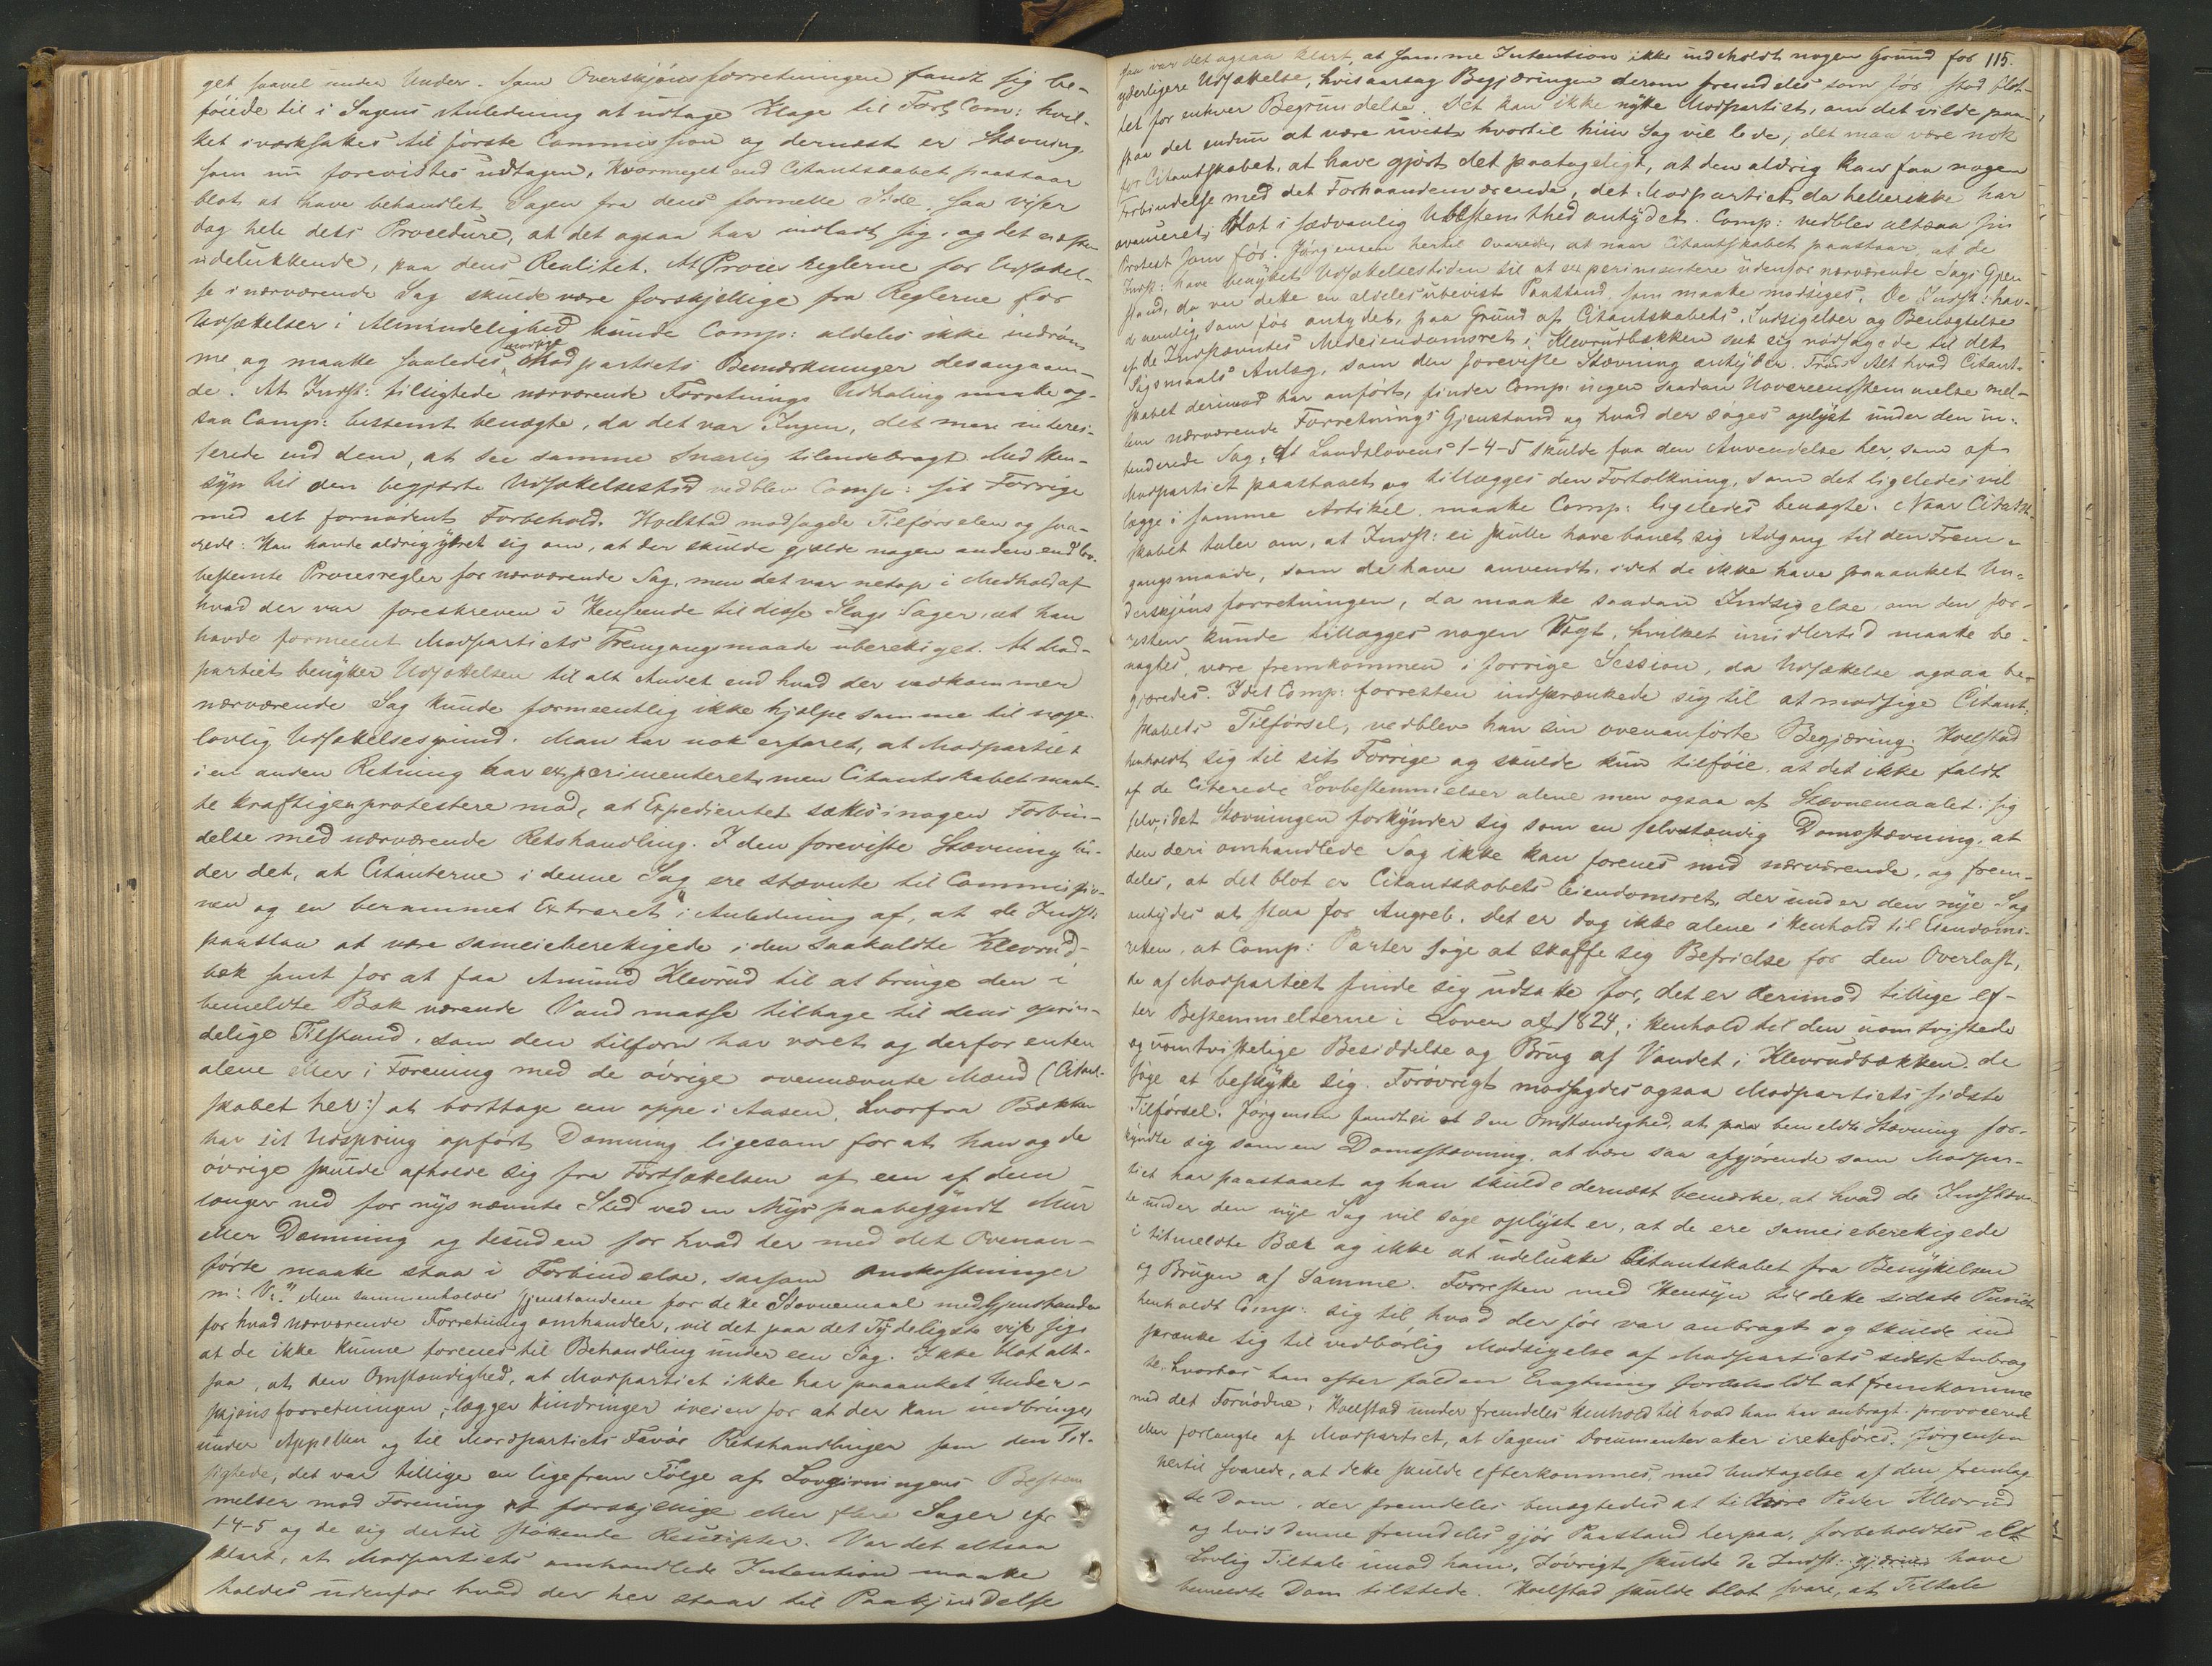 get saavel under Under- som Overskjönsforretningen fandt sig be-
föiede til i Sagens Anledning at udtage Klage til Forl: Com: hvil-
ket iværksattes til förste Commission og dernæst er Stævning,
som nu forevistes udtagen. Hvormeget end Citantskabet paastaar
blot at have behandlet Sagen fra dens formelle Side, saa viser
dog hele dets Procedure, at det ogsaa har indladt sig, og det næsten
udelukkende, paa dens Realitet. At Procesreglerne for Udsættel-
se i nærværende Sag skulde være forskjellige fra Reglerne for
Udsættelser i Almindelighed kunde Comp: aldeles ikke indröm-
me og maatte saaledes modsige Modpartiets Bemærkninger desangaaen-
de. At Indst: tilsigtede nærværende Forretnings Udhaling maatte og-
saa Comp: bestemt benægte, da det var Ingen, det mere interes-
serede end dem, at see samme snarlig tilendebragt. Med Hen-
syn til den begjærte Udsættelsestid vedblev Comp: sit Forrige
med alt fornödent Forbehold. Hoelstad modsagde Tilförselen og sva-
rede: Han havde aldrig ytret sig om, at der skulde gjælde nogen anden end lov-
bestemte Procesregler for nærværende Sag, men det var netop i Medhold af
hvad der var foreskreven i Henseende til disse Slags Sager, at han
havde formeent Modpartiets Fremgangsmaade uberettiget. At Mod-
partiet benytter Udsættelsen til alt Andet end hvad der vedkommer
nærværende Sag kunde formeentlig ikke hjælpe samme til nogen
lovlig Udsættelsesgrund. Man har nok erfaret, at Modpartiet
i en anden Retning har experimenteret, men Citantskabet maat-
te kraftigen protestere mod, at Expedientet sættes i nogen Forbin-
delse med nærværende Retshandling. I den foreviste Stævning hin-
der det, at Citanterne i denne Sag ere stævnte til Commissio-
nen og en berammet Extraret "i Anledning af, at de Indst:
paastaa at være sameieberettigede i den saakaldte Klevrud-
bæk samt for at faa Amund Klevrud til at bringe den i
bemeldte Bæk værende Vandmasse tilbage til dens oprin-
delige Tilstand, som den tilforn har været og derfor enten
alene eller i Forening med de övrige ovennævnte Mænd (Citant-
skabet her:) at borttage en oppe i Aasen, hvorfra Bækken
har sit Udspring opfört Dæmning ligesom for at han og de
övrige skulde afholde sig fra Fortsættelsen af een af dem
længer ned for nys nævnte Sted ved en Myr paabegyndt Mur
eller Dæmning og desuden for hvad der med det Ovenan-
förte maatte staa i Forbindelse, saasom Omkostninger
m: V:" Men sammenholdes Gjenstandene for dette Stævnemaal med Gjenstanden
for hvad nærværende Forretning omhandler, vil det paa det Tydeligste vise sig,
at de ikke kunne forenes til Behandling under een Sag. Ikke blot alt-
saa, at den Omstændighed, at Modpartiet ikke har paaanket Under-
skjönsforretningen, lægger Hindringer iveien for at der kan indbringes
under Appellen og til Modpartiets Favör Retshandlinger som den Til-
sigtede, det var tillige en ligefrem Fölge af Lovgivningens Bestem-
melser mod Forening af forskjellige eller flere Sager cfr
1-4-5 og de sig dertil støttende Rescripter. Var det altsaa
klart, at Modpartiets omhandlede Intention maatte
holdes udenfor hvad der her staar til Paakjendelse
115.
saa var det ogsaa klart, at samme Intention ikke indeholdt nogen Grund for
yderligere Udsættelse, hvisaarsag Begjæringen derom fremdeles som för stod blot-
tet for enhver Begrundelse. Det kan ikke nytte Modpartiet, om det vilde paa-
staa det endnu at være uvist hvortil hiin Sag vil lede; det maa være nok
for Citantskabet, at have gjort det paatageligt, at den aldrig kan faa nogen
Forbindelse med det Forhaandenværende, det Modpartiet da hellerikke har
avanceret, blot i sædvanlig Ubestemthed antydet. Comp: vedblev altsaa sin
Protest som för. Jörgensen hertil svarede, at naar Citantskabet paastaar, at de
Indst: have benyttet Udsættelsestiden til at experimentere udenfor nærværende Sags Gjen
stand, da var dette en aldeles ubevist Paastand, som maatte modsiges. De Indst: hav-
de nemlig som för antydet, paa Grund af Citantskabets Indsigelser og Benægtelse
af de Indstævntes Medeiendomsret i Klevrudbækken seet sig nödsagede til det
Sögsmaals Anlæg, som den foreviste Stævning antyder. Trods Alt hvad Citant-
skabet derimod har anfört, finder Comp: ingen saadan Uovereensstemmelse mel-
lem nærværende Forretnings Gjenstand og hvad der söges oplyst under den in-
tenderede Sag. At Landslovens 1-4-5 skulde faa den Anvendelse her, som af
Modpartiet paastaaet, og tillægges den Fortolkning, som det ligeledes vil
lægge i samme Artikel, maatte Comp: ligeledes benægte. Naar Citant-
skabet taler om, at Indst: ei skulle have banet sig Adgang til den Frem-
gangsmaade, som de have anvendt, idet de ikke have paaanket Un-
derskjöns forretningen, da maatte saadan Indsigelse, om den for-
resten kunde tillægges nogen Vægt, hvilket imidlertid maatte be-
nægtes, være fremkommen i forrige Session, da Udsættelse ogsaa be-
gjæredes. Idet Comp: forresten indskrænkede sig til at modsige Citant-
skabets Tilförsel, vedblev han sin ovenanförte Begjæring. Hoelstad
henholdt sig til sit Forrige og skulde kun tilföie, at det ikke faldt
af de citerede Lovbestemmelser alene men ogsaa af Stævnemaalet i sig
selv, idet Stævningen forkynder sig som en selvstændig Domsstævning, at
den deri omhandlede Sag ikke kan forenes med nærværende, og frem-
deles, at det blot er Citantskabets Eiendomsret, der under den nye Sag
antydes at staa for Angreb. Det er dog ikke alene i Henhold til Eiendoms-
retten, at Comp: Parter söge at skaffe sig Befrielse for den Overlast,
de af Modpartiet finde sig udsatte for, det er derimod tillige ef-
ter Bestemmelserne i Loven af 1824, i Henhold til den uomtvistede
og uomtvistelige Besiddelse og Brug af Vandet i Klevrudbækken, de
söge at beskytte sig. Forövrigt modsagdes ogsaa Modpartiets sidste
Tilförsel. Jörgensen fandt ei at den Omstændighed, at paa bemeldte Stævning for-
kyndte sig som en Domsstævning, at være saa afgjörende som Modpar-
tiet har paastaaet og han skulde dernæst bemærke, at hvad de Indstævn-
te under den nye Sag vil söge oplyst er, at de ere sameieberettigede
i titmeldte Bæk og ikke at udelukke Citantskabet fra Benyttelsen
og Brugen af Samme. Forresten med Hensyn til dette sidste Punct
henholdt Comp: sig til, hvad der för var anbragt og skulde ind
skrænke sig til vedbörlig Modsigelse af Modpartiets sidste Anbrag
te, hvorhos han efter falden Eragtning forbeholdt at fremkomme
med det Fornödne. Hoelstad under fremdeles Henhold til hvad han har anbragt provocerede
eller forlangte af Modpartiet, at Sagens Documenter atter iretteföres. Jörgensen
hertil svarede, at dette skulde efterkommes, med Undtagelse af den fremlag
te Dom, der fremdeles benægtedes at tilhöre Peder Klevrud
og hvis denne fremdeles gjör Paastand herpaa, forbeholdtes alt
Lovlig Tiltale imod ham. Iövrigt skulde de Indst: have
bemeldte Dom tilstede. Hoelstad skulde blot svare, at Tiltale